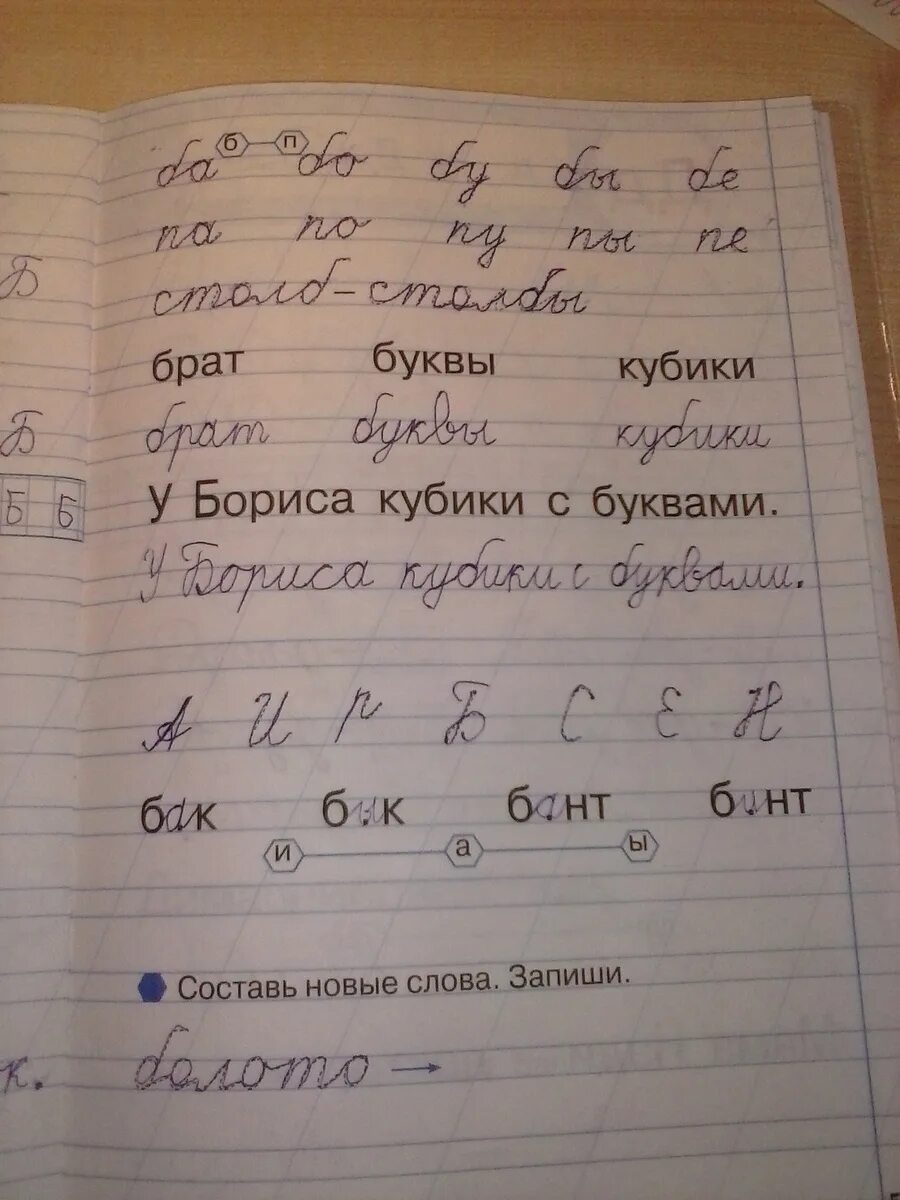 б п
ба бо бу бы бе
па по пу пы пе
Б
столб – столбы
брат буквы кубики
Б
брат буквы кубики
Б Б
У Бориса кубики с буквами.
У Бориса кубики с буквами.
А И Р Б С Е Н
бак бык бант бинт
и а ы
Составь новые слова. Запиши.
к. болото →